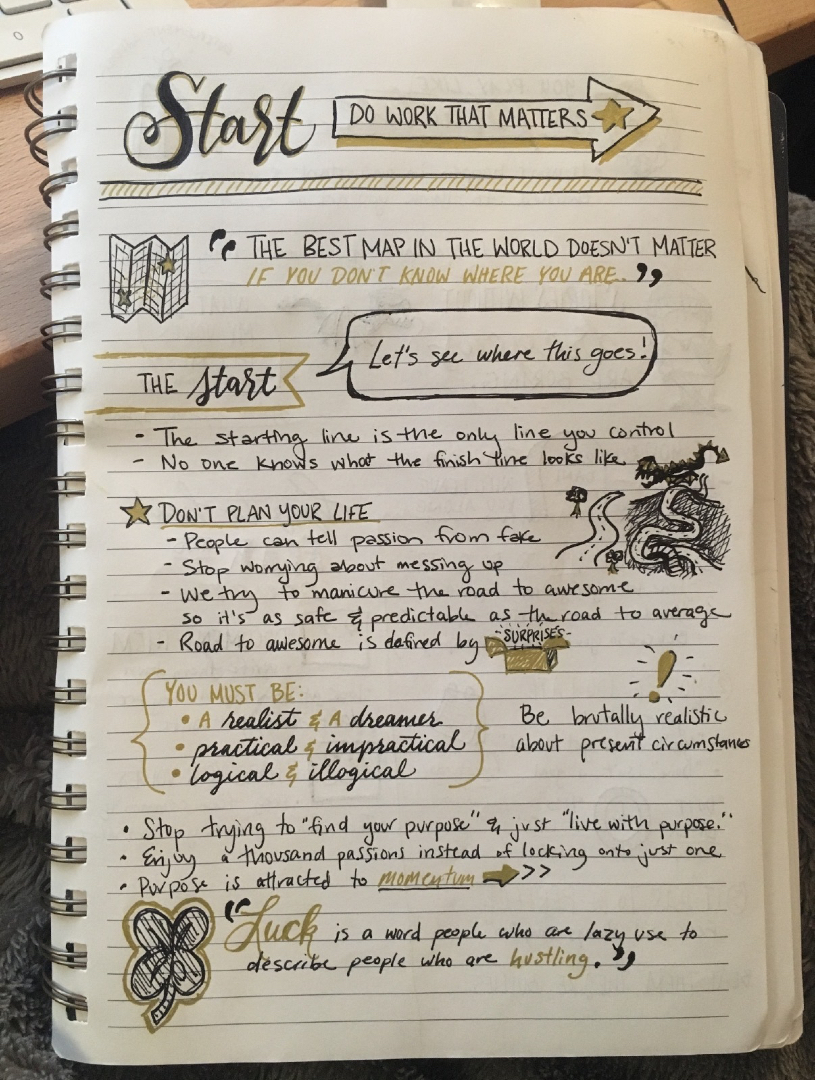 Start DO WORK THAT MATTERS
" THE BEST MAP IN THE WORLD DOESN'T MATTER
IF YOU DON'T KNOW WHERE YOU ARE. "
Let's see where this goes!
THE start
- The starting line is the only line you control
- No one knows what the finish line looks like
DON'T PLAN YOUR LIFE
- People can tell passion from fake
- Stop worrying about messing up
- We try to manicure the road to awesome
so it's as safe & predictable as the road to average
- Road to awesome is defined by -SURPRISES-
!
YOU MUST BE:
• A realist & A dreamer
• practical & impractical
• logical & illogical
Be brutally realistic
about present circumstances
• Stop trying to "find your purpose" & just "live with purpose."
• Enjoy a thousand passions instead of locking onto just one
• Purpose is attracted to momentum >>
" Luck is a word people who are lazy use to
describe people who are hustling. "